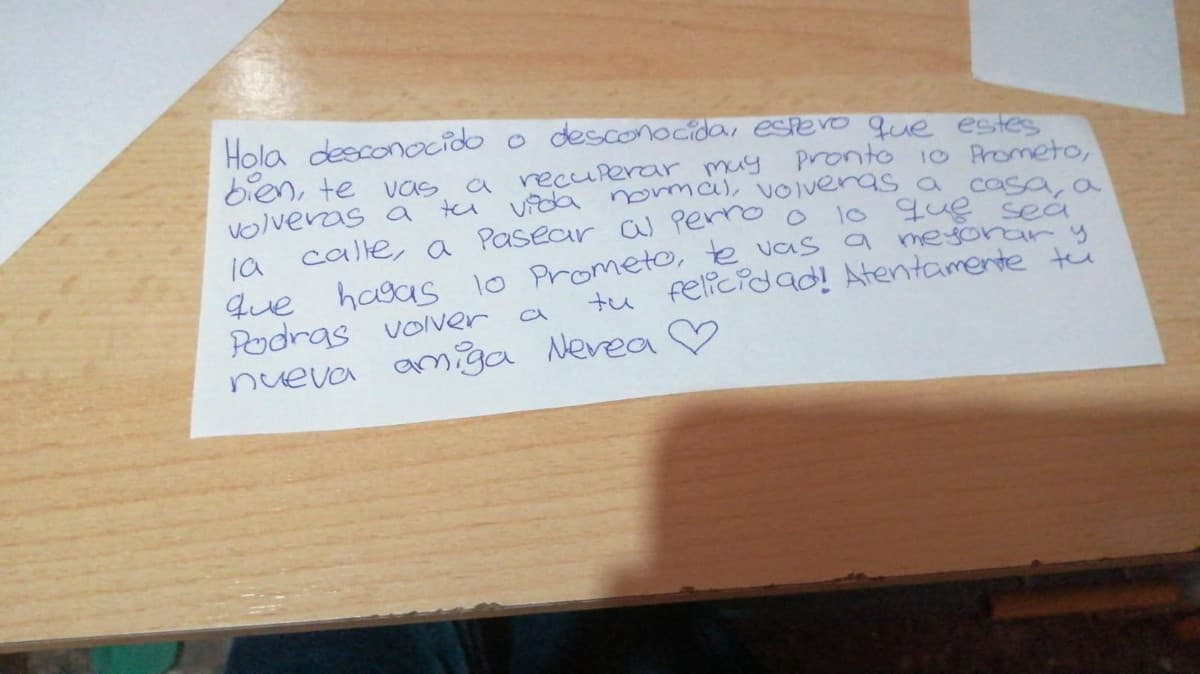 Hola desconocido o desconocida, espero que estes
bien, te vas a recuperar muy pronto lo Prometo,
volveras a tu vida normal, volveras a casa, a
la calle, a Pasear al Perro o lo que sea
que hagas lo Prometo, te vas a mejorar y
Podras volver a tu felicidad! Atentamente tu
nueva amiga Nerea ♡